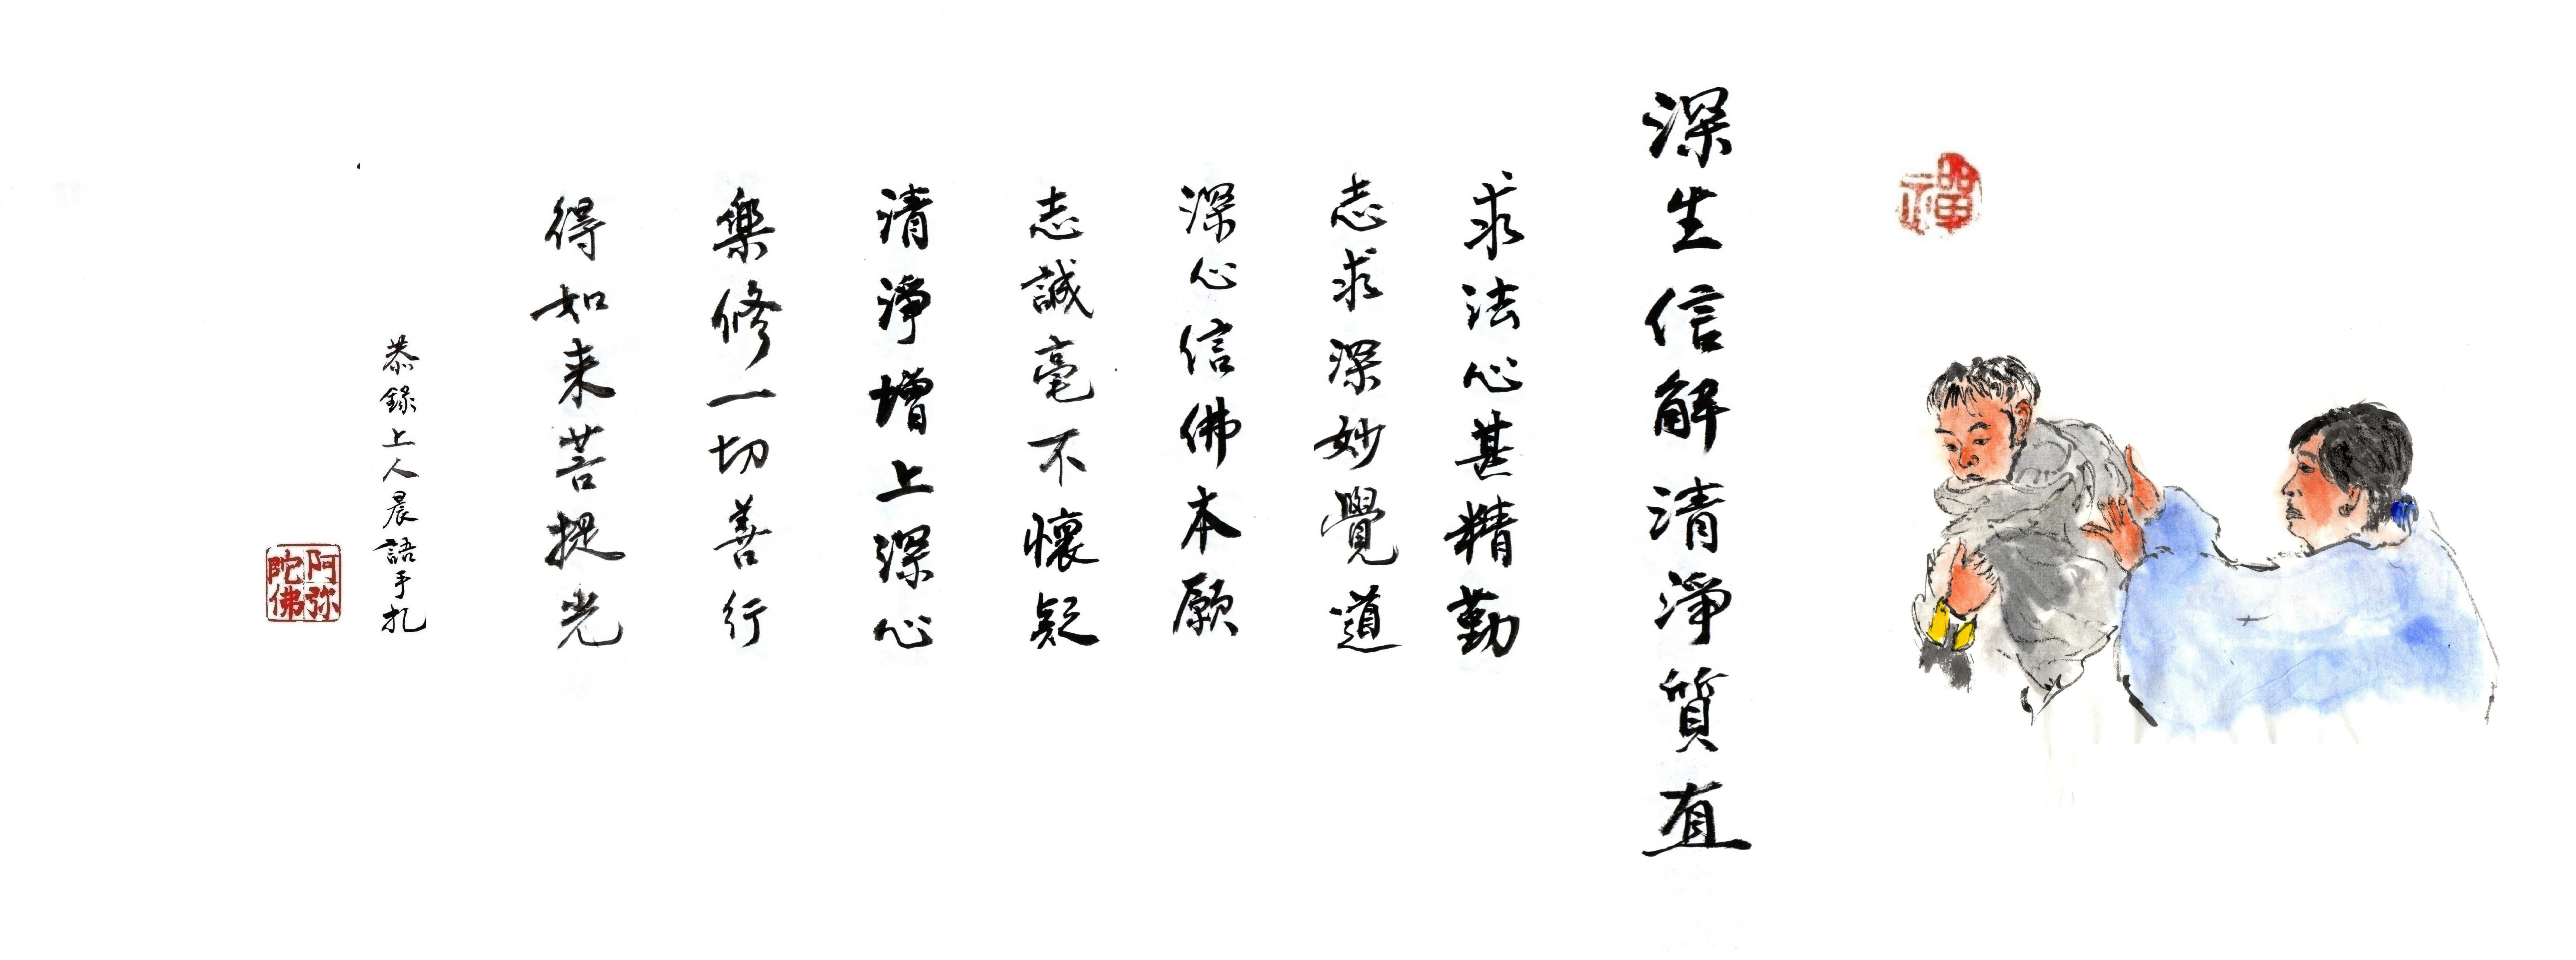 禪
深生信解清淨質直
求法心甚精勤
志求深妙覺道
深心信佛本願
志誠毫不懷疑
清淨增上深心
樂修一切善行
得如来菩提光
恭錄上人晨語手札
阿弥陀佛